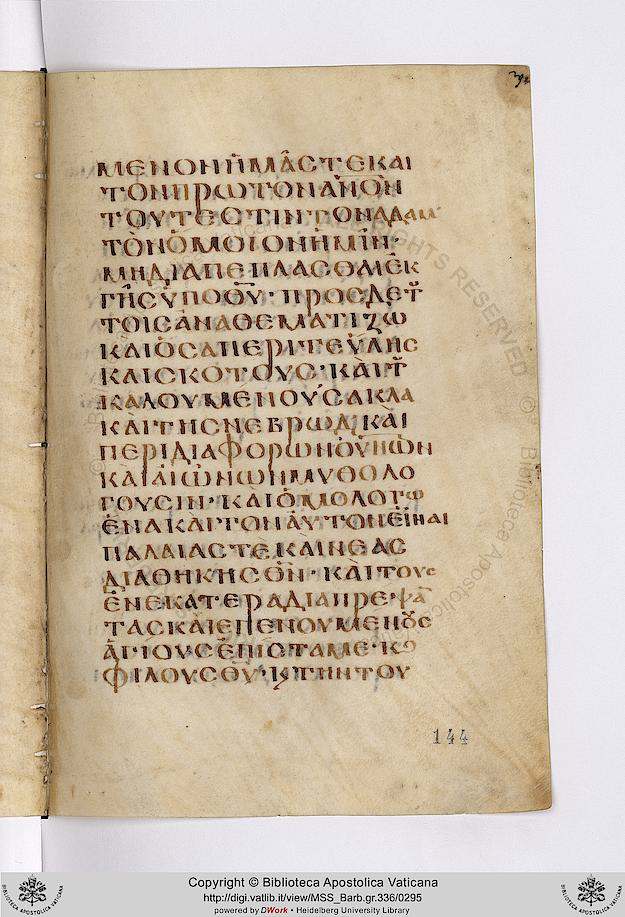 ΜΕΝΟΝ ΗΜΑΣ ΤΕ ΚΑΙ
ΤΟΝ ΠΡΩΤΟΝ ΑΝΟΝ
ΤΟΥΤΕΣΤΙΝ ΤΟΝ ΑΔΑΜ
ΤΟΝ ΟΜΟΙΟΝ ΗΜΙΝ·
ΜΗ ΔΙΑΠΕΠΛΑΣΘΑΙ ΕΚ
ΓΗΣ ΥΠΟ ΘΥ· ΠΡΟΣ ΔΕ Τ
ΤΟΙΣ ΑΝΑΘΕΜΑΤΙΖΩ
ΚΑΙ ΟΣΑ ΠΕΡΙ ΤΕ ΥΛΗΣ
ΚΑΙ ΣΚΟΤΟΥΣ· ΚΑΙ Τ
ΚΑΛΟΥΜΕΝΟΥ ΣΑΚΛΑ
ΚΑΙ ΤΗΣ ΝΕΒΡΩΔ· ΚΑΙ
ΠΕΡΙ ΔΙΑΦΟΡΩΝ ΟΥΝΩΝ
ΚΑΙ ΑΙΩΝΩΝ ΜΥΘΟΛΟ
ΓΟΥΣΙΝ· ΚΑΙ ΟΜΟΛΟΓΩ
ΕΝΑ ΚΑΙ ΤΟΝ ΑΥΤΟΝ ΕΙΝΑΙ
ΠΑΛΑΙΑΣ ΤΕ ΚΑΙ ΝΕΑΣ
ΔΙΑΘΗΚΗΣ ΘΝ· ΚΑΙ ΤΟΥΣ
ΕΝ ΕΚΑΤΕΡΑ ΔΙΑΠΡΕΨΑ
ΤΑΣ ΚΑΙ ΕΠΕΝΟΥΜΕΝΟΥΣ
ΑΓΙΟΥΣ ΕΠΙΣΤΑΜΕ· Κ
ΦΙΛΟΥΣ ΘΥ· Κ ΤΗΝ ΤΟΥ
144
RIGHTS RESERVED
© Biblioteca Apostolica
Copyright © Biblioteca Apostolica Vaticana
http://digi.vatlib.it/view/MSS_Barb.gr.336/0295
powered by DWork • Heidelberg University Library